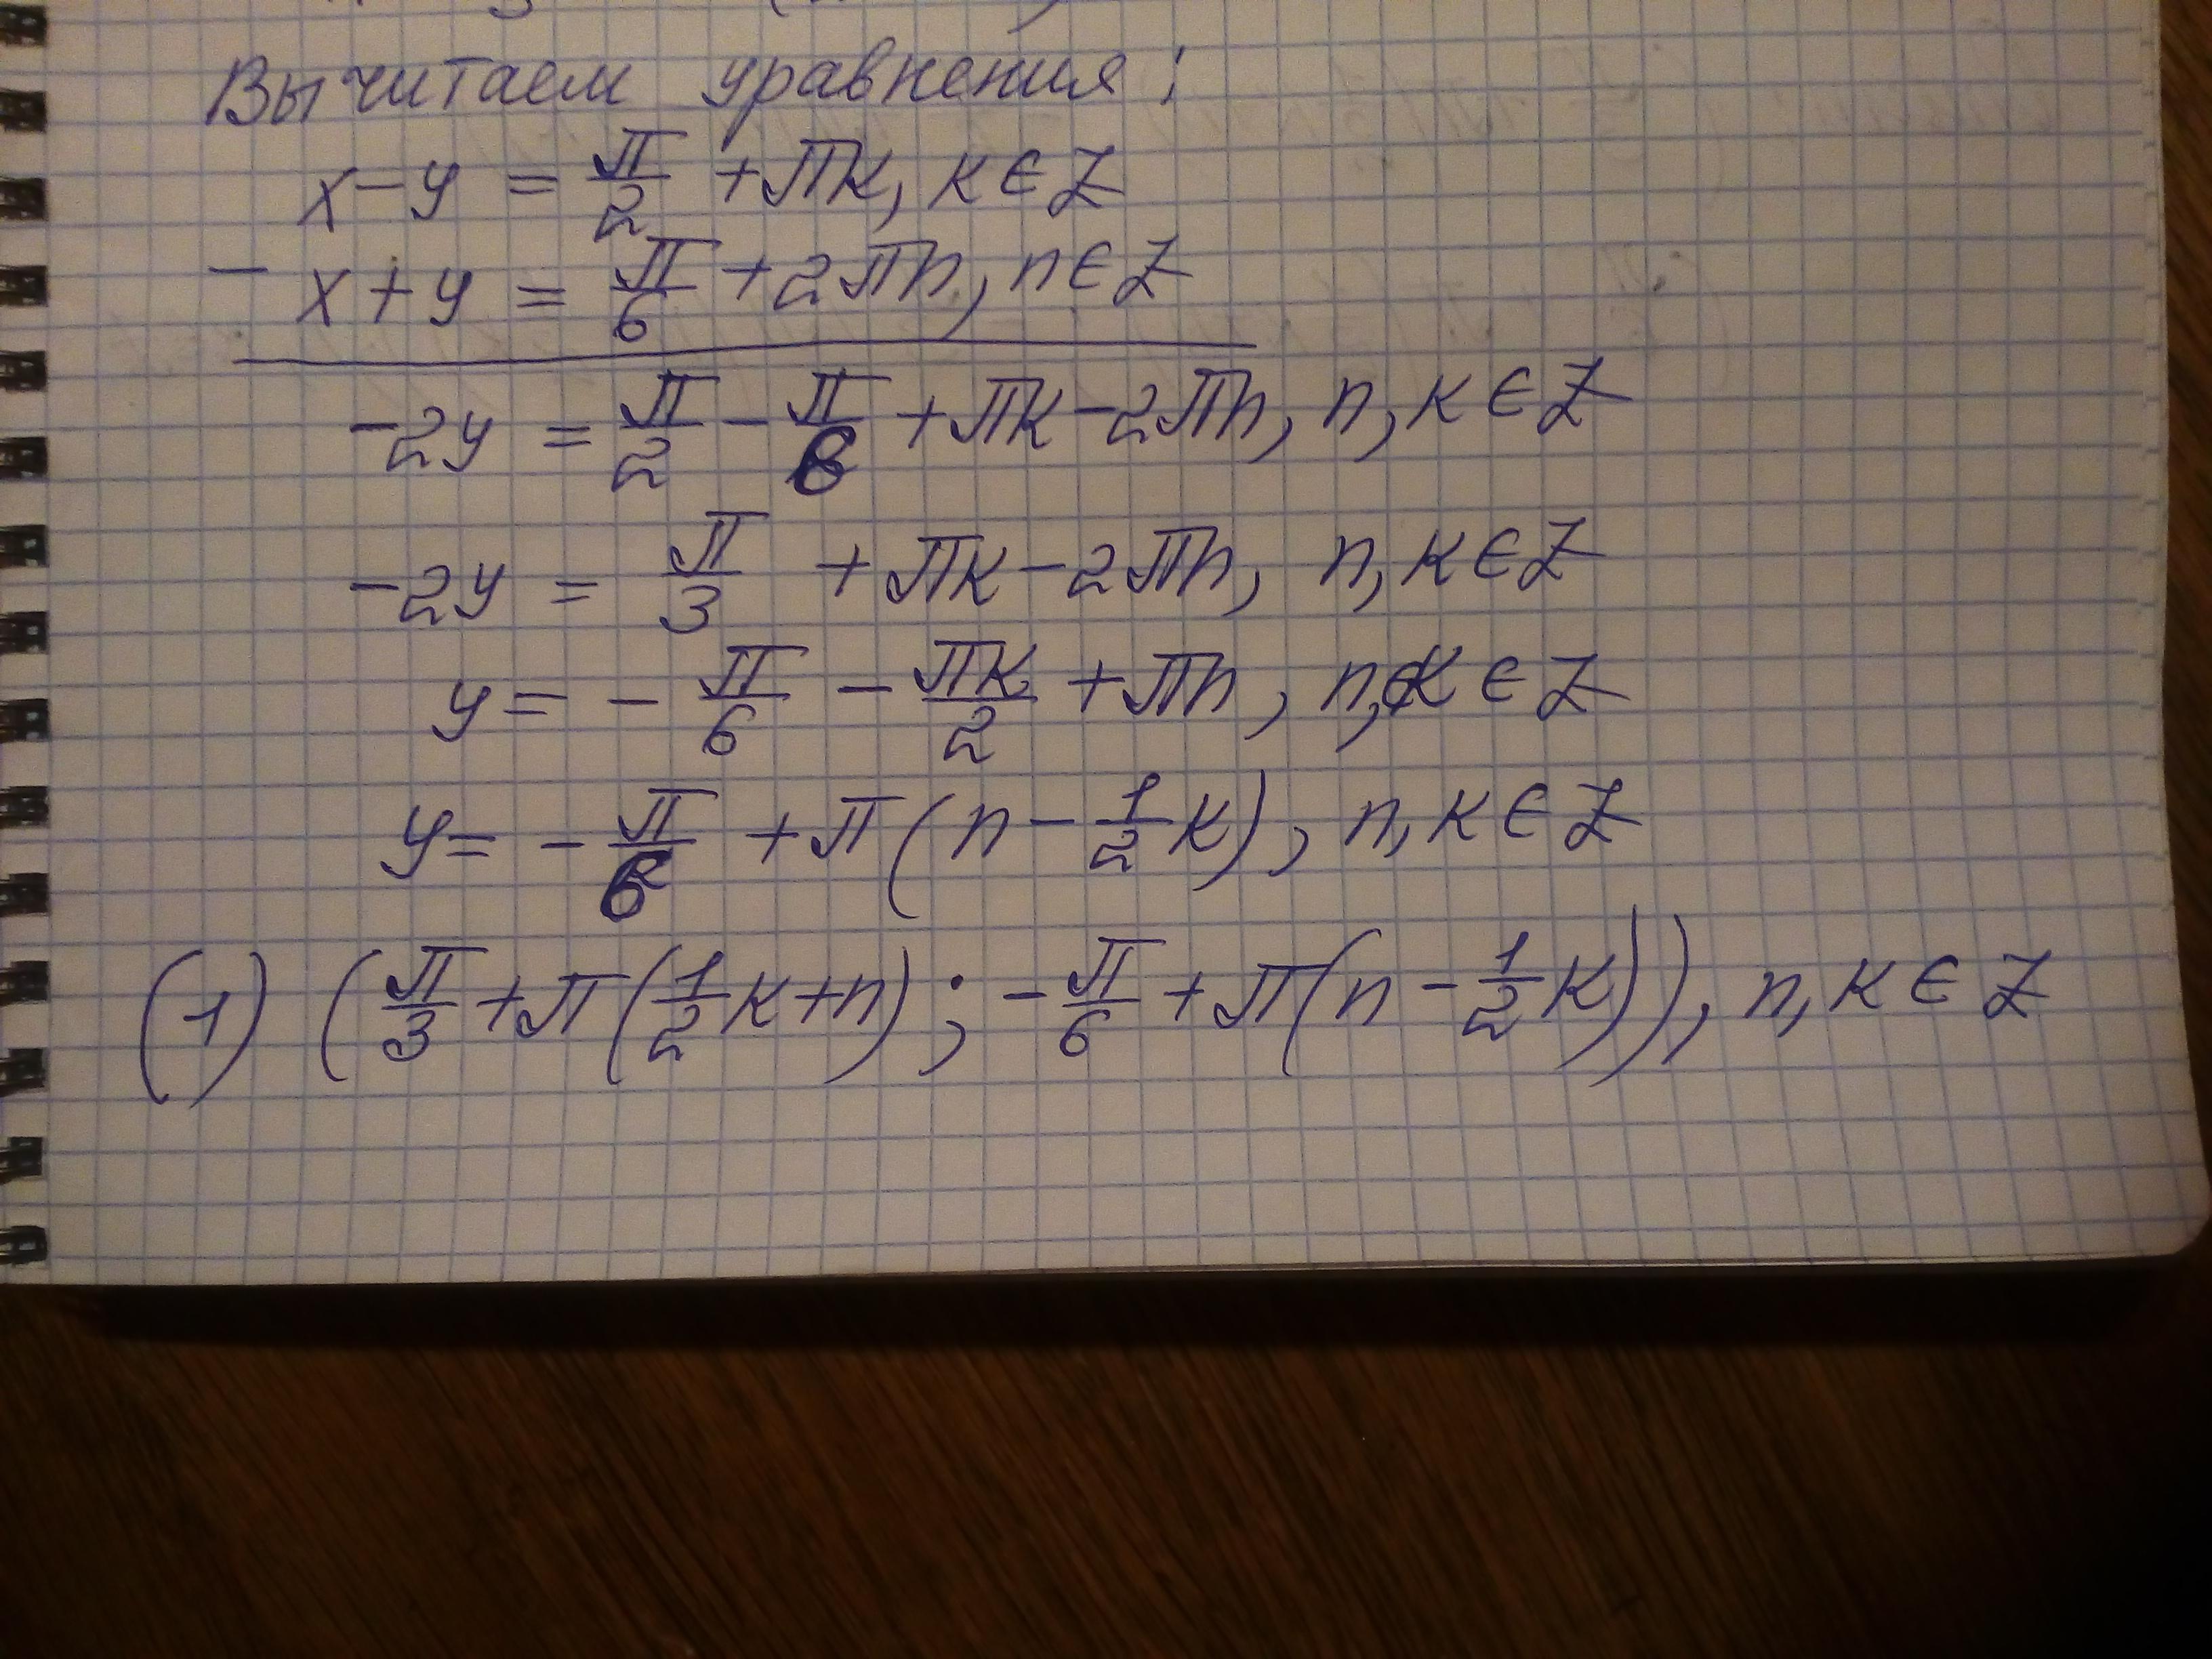 Вычитаем уравнения:
x-y = π/2 + πk, k∈Z
- x+y = π/6 + 2πn, n∈Z
-2y = π/2 - π/6 + πk - 2πn, n,k∈Z
-2y = π/3 + πk - 2πn, n,k∈Z
y = - π/6 - πk/2 + πn, n,k∈Z
y = - π/6 + π(n - 1/2 k), n,k∈Z
(1) (π/3 + π(1/2 k + n); - π/6 + π(n - 1/2 k)), n,k∈Z